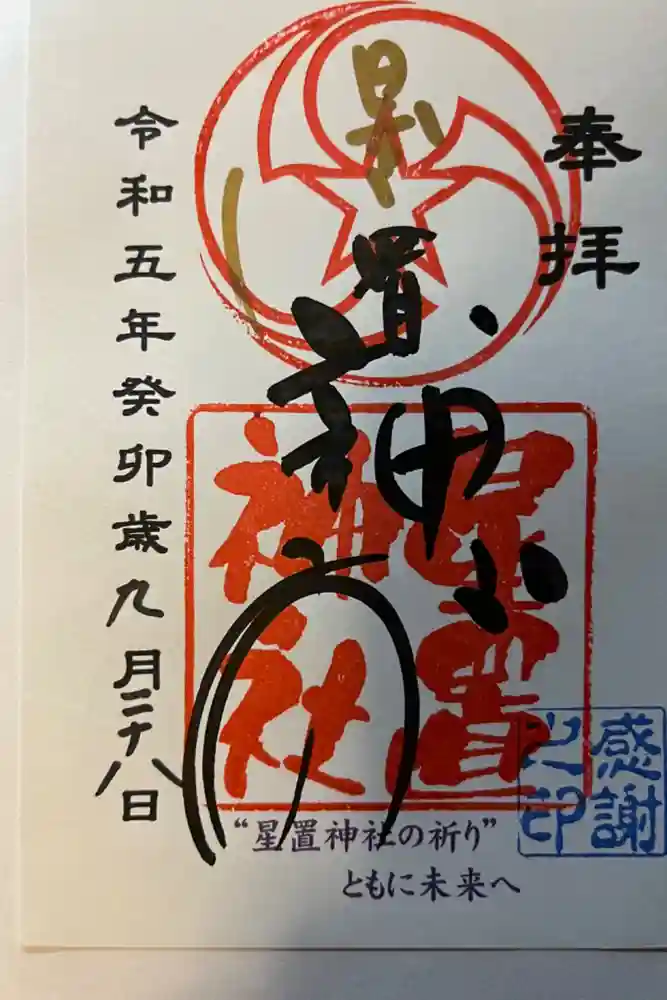 奉拝
星置神社
星置神社
令和五年癸卯歳九月二十八日
感謝之印
“星置神社の祈り”
ともに未来へ